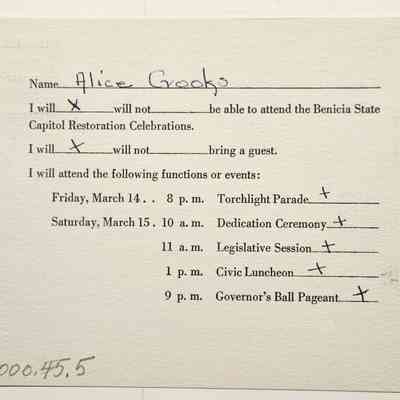 Name Alice Crooks
I will X will not be able to attend the Benicia State
Capitol Restoration Celebrations.
I will X will not bring a guest.
I will attend the following functions or events:
Friday, March 14 . . 8 p. m. Torchlight Parade +
Saturday, March 15 . 10 a. m. Dedication Ceremony +
11 a. m. Legislative Session +
1 p. m. Civic Luncheon +
9 p. m. Governor's Ball Pageant +
000.45.5